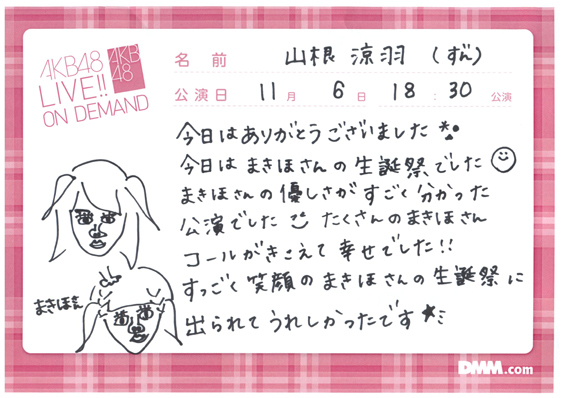 AKB48
LIVE!!
ON DEMAND
AKB
48
名前 山根 涼羽 (ずん)
公演日 11月 6日 18:30 公演
今日はありがとうございました
今日は まきほさんの生誕祭でした
まきほさんの優しさがすごく分かった
公演でした たくさんのまきほさん
コールがきこえて幸せでした!!
すっごく笑顔のまきほさんの生誕祭に
出られてうれしかったです
まきほさん
DMM.com